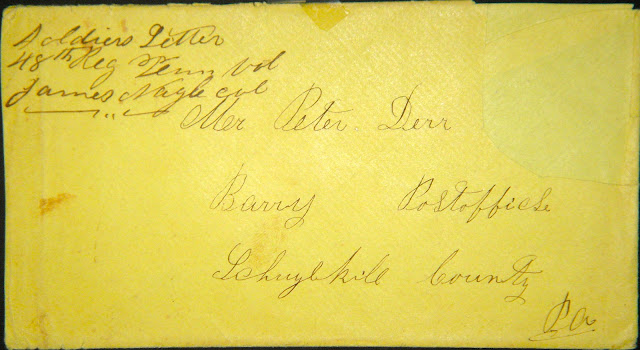 Soldiers Letter
48th Reg Penn Vol
James Nagle col
Mr Peter Derr
Barry Postoffice
Schuylkill County
Pa